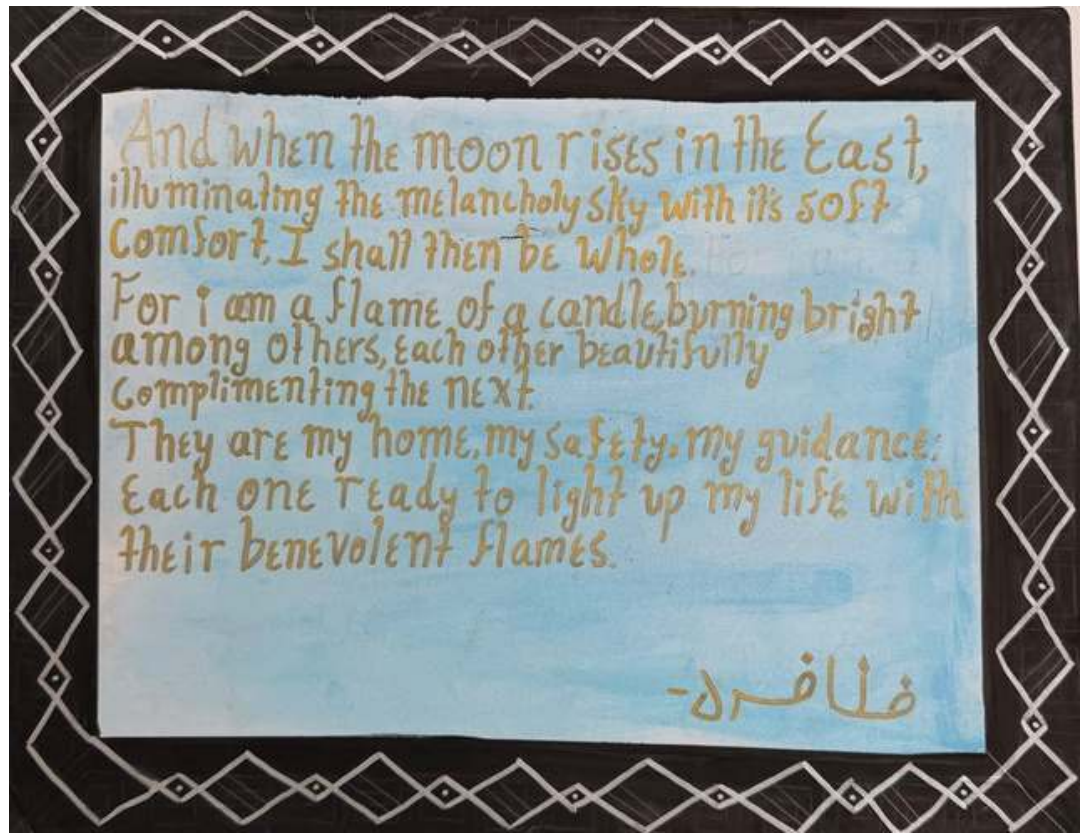 And when the moon rises in the East,
illuminating the melancholy sky with it's soft
Comfort, I shall then be whole.
For i am a flame of a candle, burning bright
among others, each other beautifully
complimenting the next.
They are my home, my safety, my guidance.
Each one ready to light up my life with
their benevolent flames.
ظافره-